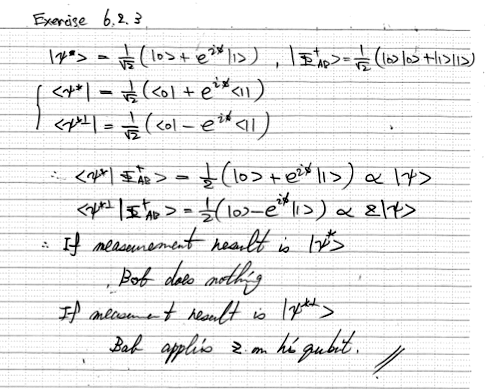 Exercise 6.2.3
|ψ*> = 1/√2 (|0> + e^{iϕ}|1>), |Φ⁺_{AB}> = 1/√2 (|0>|0> + |1>|1>)
<ψ*| = 1/√2 (<0| + e^{iϕ}<1|)
<ψ*⊥| = 1/√2 (<0| - e^{iϕ}<1|)
∴ <ψ*|Φ⁺_{AB}> = 1/2 (|0> + e^{iϕ}|1>) ∝ |ψ>
<ψ*⊥|Φ⁺_{AB}> = 1/2 (|0> - e^{iϕ}|1>) ∝ Z|ψ>
∴ If measurement result is |ψ*>
, Bob does nothing
If measurement result is |ψ*⊥>
Bob applies Z on his qubit. //